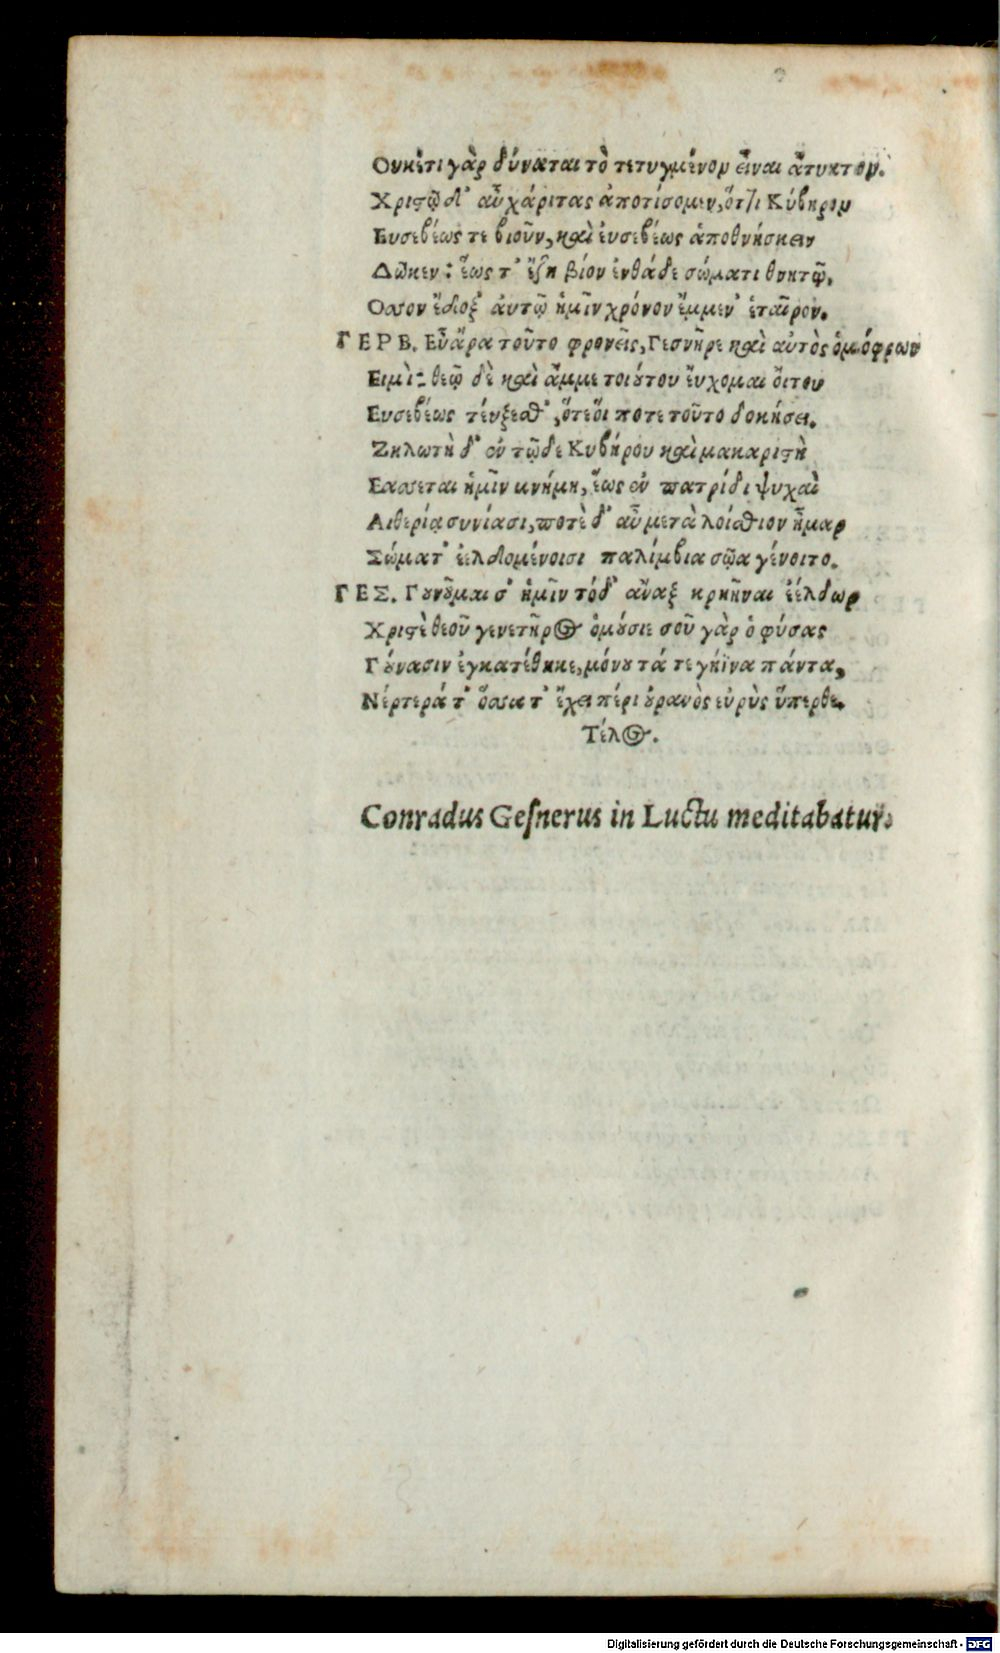 Ουκέτι γὰρ δύναται τὸ τετυγμένον εἶναι ἄτυκτον.
Χριςῷ δ᾽ αὖ χάριτας ἀποτίσομεν, ὅτʃι Κύβηρον
Ευσεβέως τε βιοῦν, καὶ ἐυσεβέως ἀποθνήσκειν
Δῶκεν: ἕως τ᾽ ἔζη βίον ἐνθάδε σώματι θνητῷ,
Οσσον ἔδοξ᾽ ἀυτῷ ἡμῖν χρόνον ἔμμεν᾽ ἑταῖρον.
ΓΕΡΒ. Εὖ ἄρα τοῦτο φρονεῖς, Γεσνῆρε καὶ αὐτὸς ὁμόφρων
Ειμὶ: θεῷ δὲ καὶ ἄμμε τοιούτου ἔυχομαι ὄιτου
Ευσεβέως τέυξεσθ᾽, ὅτε ὅι ποτε τοῦτο δοκήσει.
Ζηλωτὴ δ᾽ ἐν τῷδε Κυβήρου καὶ μακαριςὴ
Εσσεται ἡμῖν μνήμη, ἕως ἐν πατρίδι ψυχαὶ
Αιθερίᾳ συνίασι, ποτὲ δ᾽ αὖ μετὰ λοίσθιον ἦμαρ
Σώματ᾽ ἐελδομένοισι παλίμβια σῶα γένοιτο.
ΓΕΣ. Γουνοῦμαι σ᾽ ἡμῖν τόδ᾽ ἄναξ κρηῆναι ἐέλδωρ
Χριςὲ θεοῦ γενετῆρος ὁμούσιε σοῦ γὰρ ὁ φύσας
Γούνασιν ἐγκατέθηκε, μόνου τά τε γήϊνα πάντα,
Νέρτερά τ᾽ ὅσσα τ᾽ ἔχει πέρι ὀυρανὸς εὐρὺς ὕπερθε.
Τέλος.
Conradus Geſnerus in Luctu meditabatur.
Digitalisierung gefördert durch die Deutsche Forschungsgemeinschaft - DFG